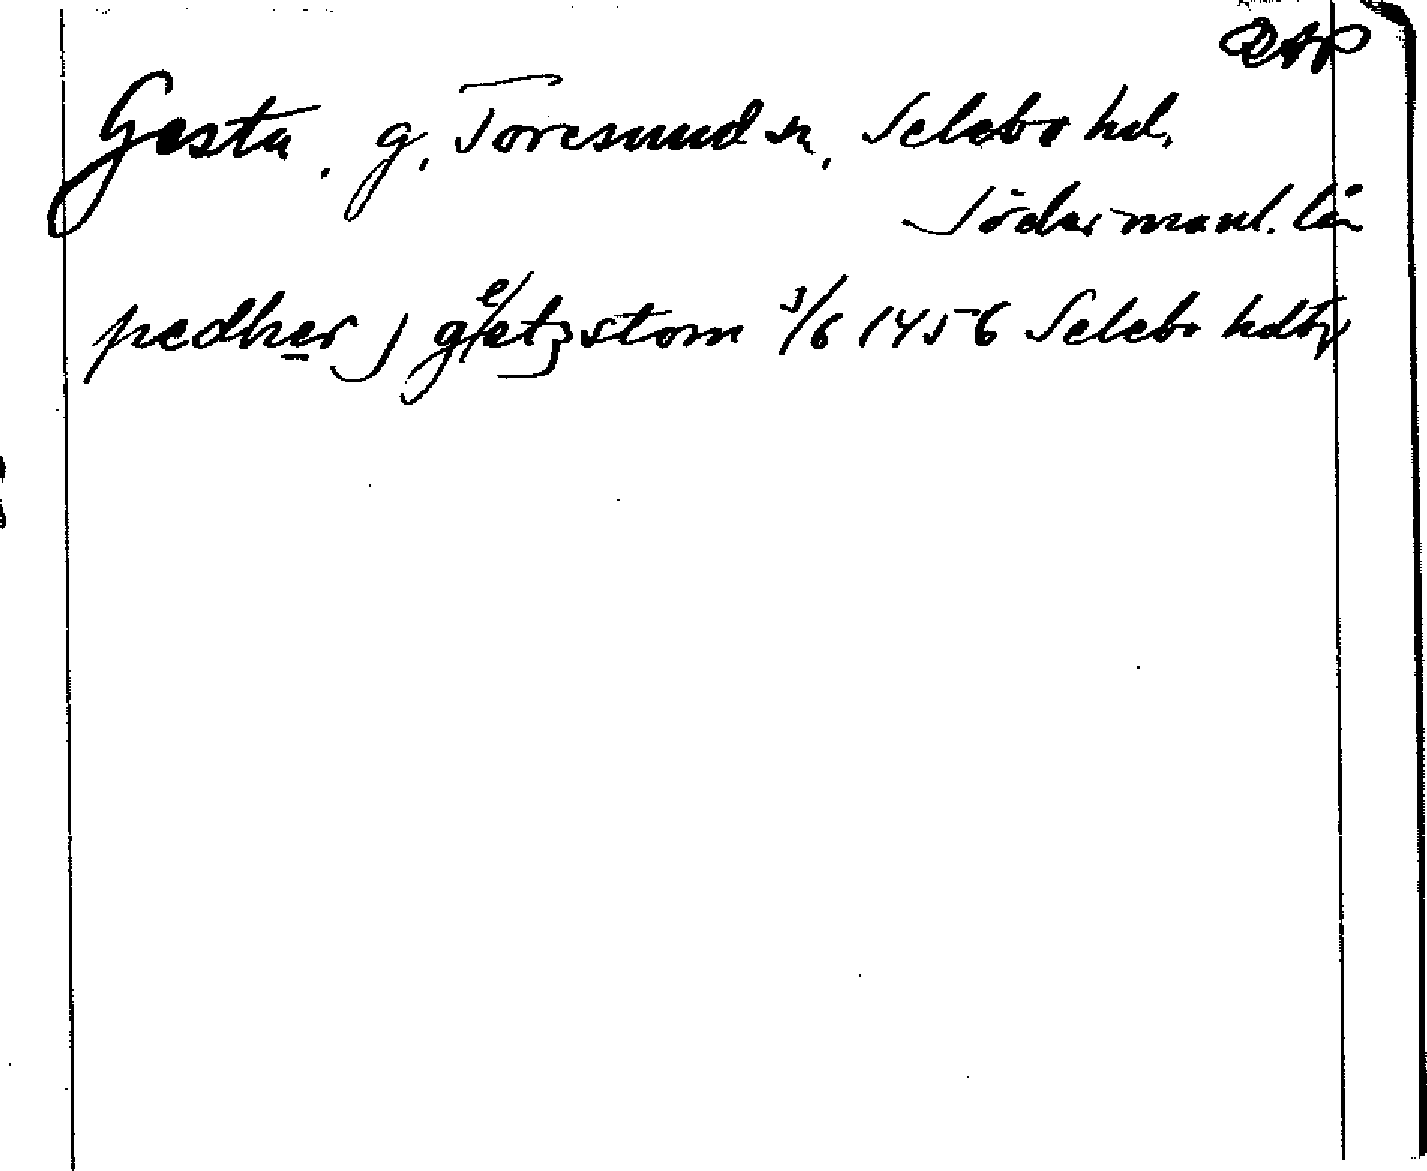 Gesta. g. Toresund sn, Selebo hd,
Södermanl. län
pedher j getzstom 3/6 1456 Selebo hdtg